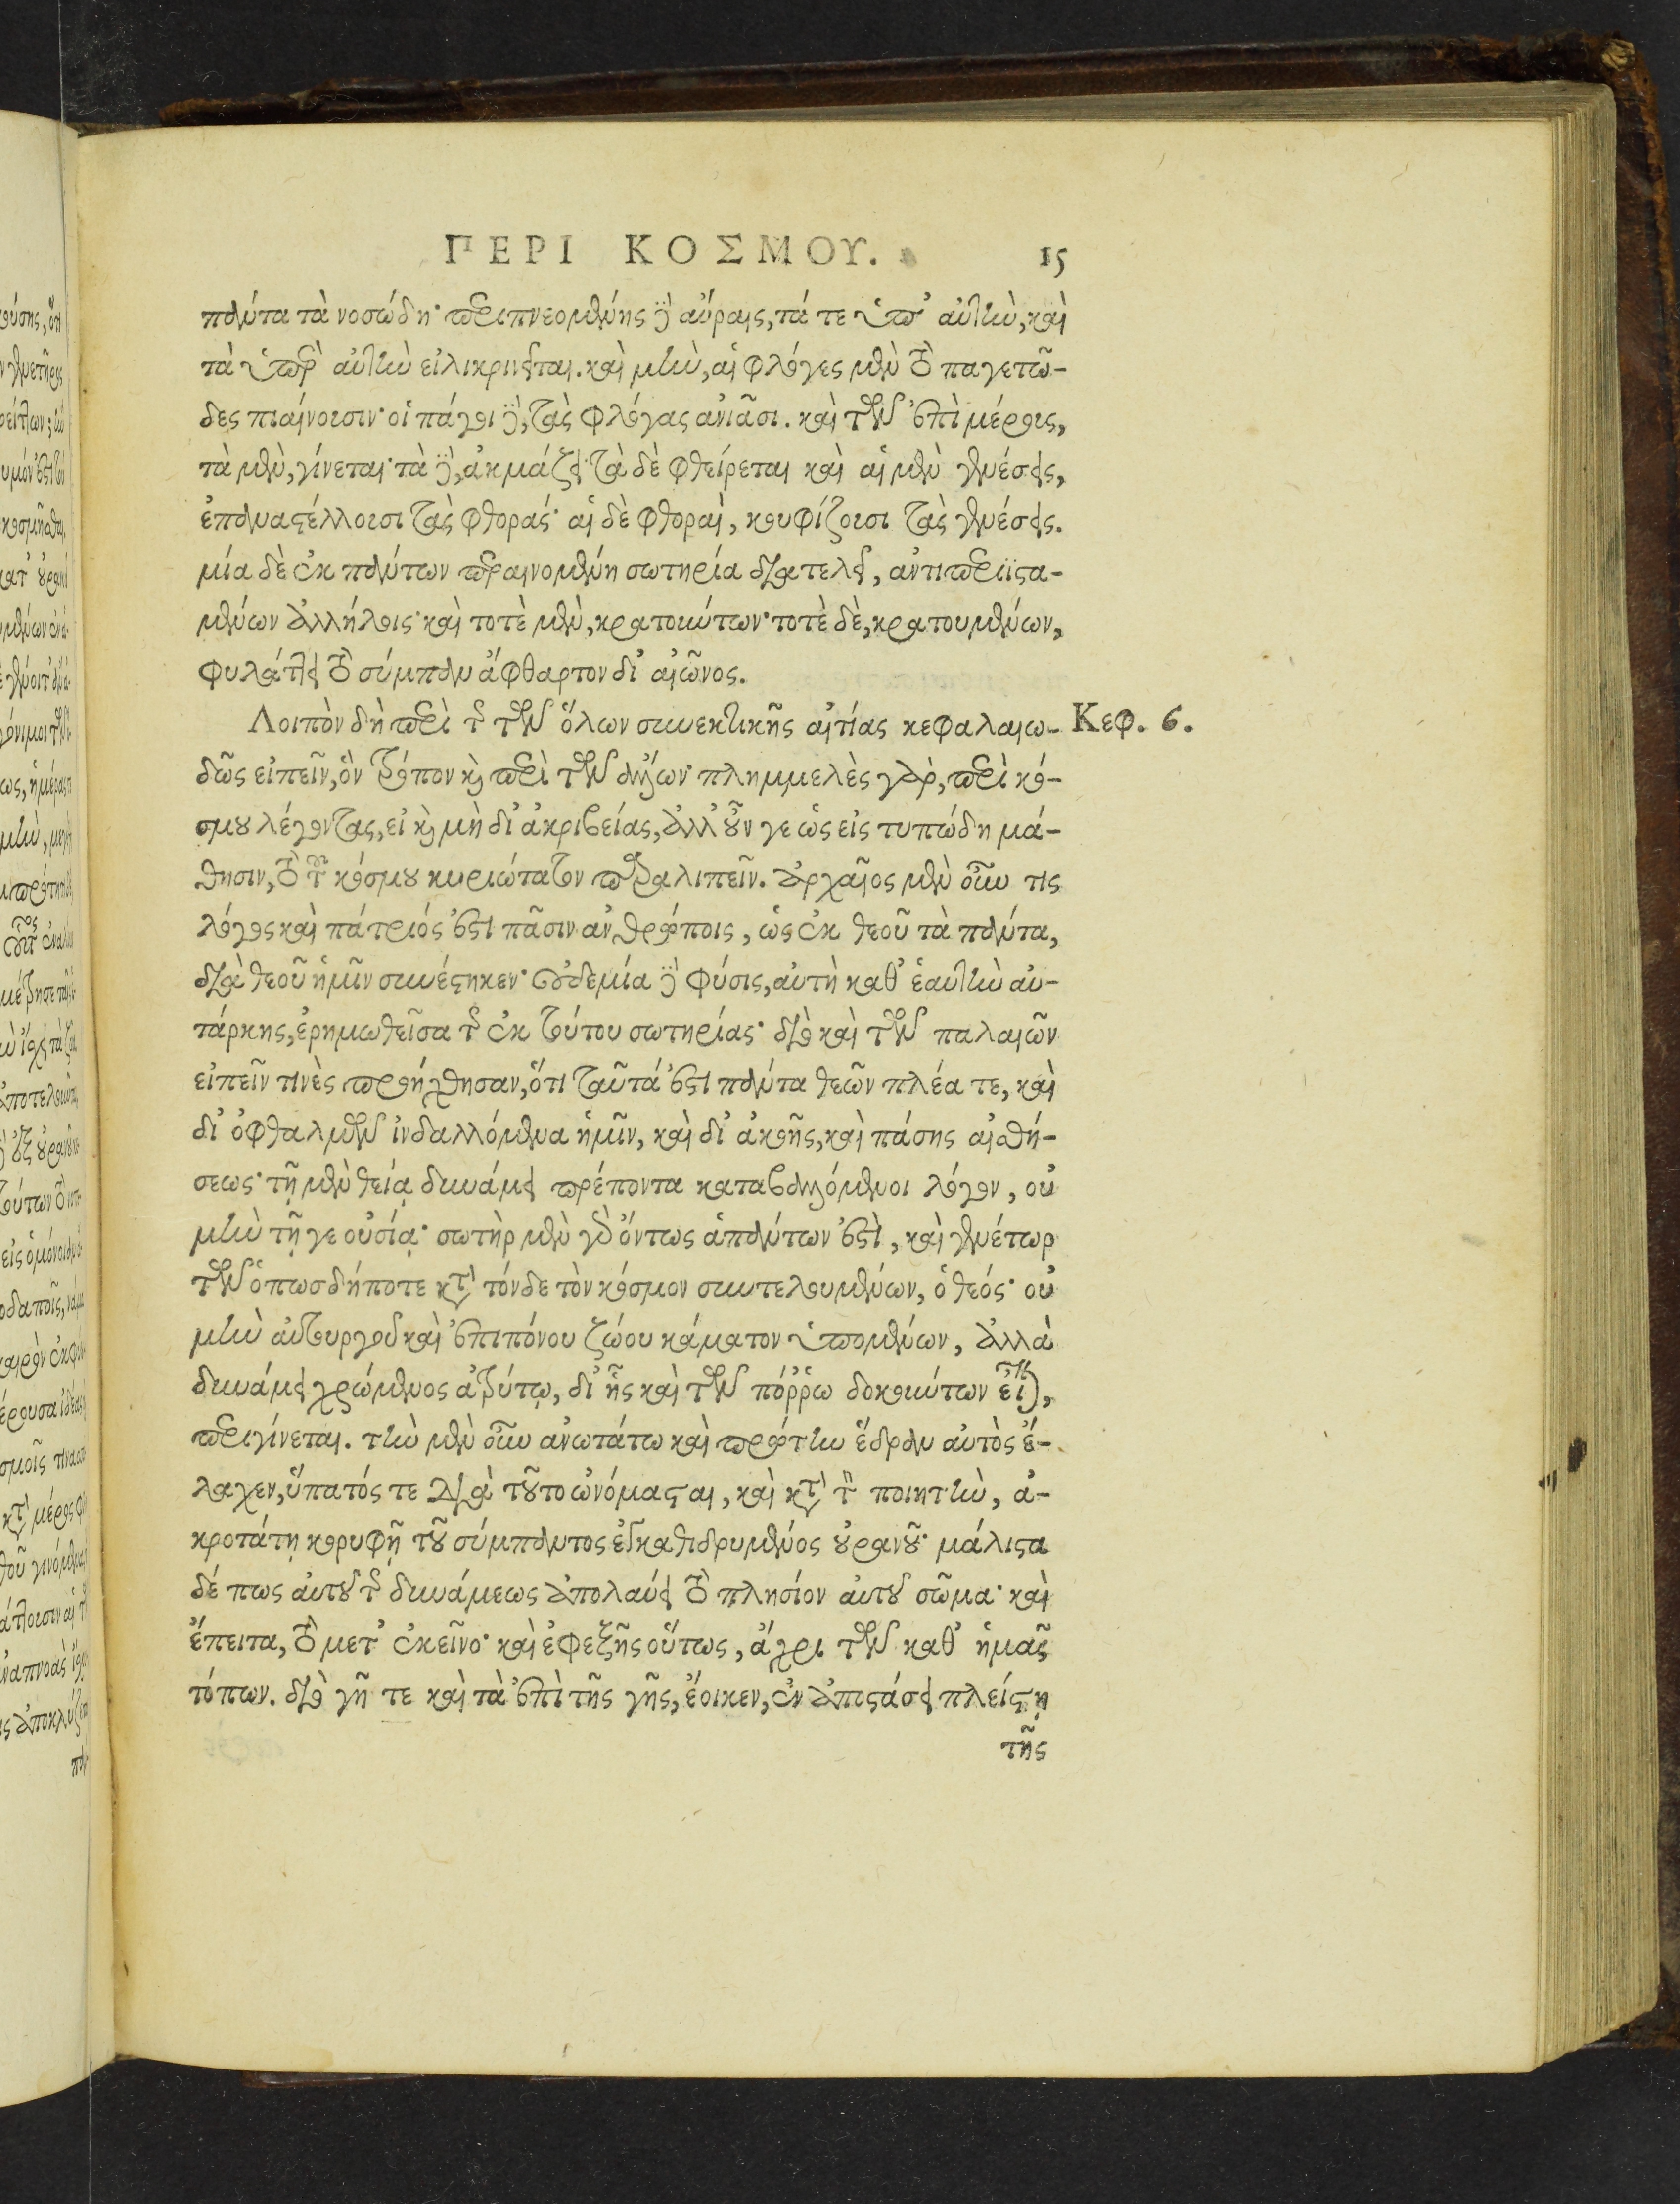 ΠΕΡΙ ΚΟΣΜΟΥ. 15
πάντα τὰ νοσώδη· περιπνεομένης δὲ αὔραις, τά τε ὑπ' αὐτὴν, καὶ
τὰ ὑπὲρ αὐτὴν εἰλικρινεῖται. καὶ μὴν, αἱ φλόγες μὲν τὸ παγετῶ-
δες πιαίνουσιν· οἱ πάγοι δὲ, τὰς φλόγας ἀνιᾶσι. καὶ τῶν ἐπὶ μέρους,
τὰ μὲν, γίνεται· τὰ δὲ, ἀκμάζει· τὰ δὲ φθείρεται καὶ αἱ μὲν γενέσεις,
ἐπαναστέλλουσι τὰς φθοράς· αἱ δὲ φθοραὶ, κουφίζουσι τὰς γενέσεις.
μία δὲ ἐκ πάντων περαινομένη σωτηρία διατελεῖ, ἀντιπεριϊστα-
μένων ἀλλήλοις· καὶ τοτὲ μὲν, κρατούντων· τοτὲ δὲ, κρατουμένων,
φυλάττει τὸ σύμπαν ἄφθαρτον δι' αἰῶνος.
Λοιπὸν δὴ περὶ τῆς τῶν ὅλων συνεκτικῆς αἰτίας κεφαλαιω- Κεφ. 6.
δῶς εἰπεῖν, ὃν τρόπον καὶ περὶ τῶν ἄλλων· πλημμελὲς γὰρ, περὶ κό-
σμου λέγοντας, εἰ καὶ μὴ δι' ἀκριβείας, ἀλλ' οὖν γε ὡς εἰς τυπώδη μά-
θησιν, τὸ τοῦ κόσμου κυριώτατον παραλιπεῖν. ἀρχαῖος μὲν οὖν τις
λόγος καὶ πάτριός ἐστι πᾶσιν ἀνθρώποις, ὡς ἐκ θεοῦ τὰ πάντα,
διὰ θεοῦ ἡμῖν συνέστηκεν· οὐδεμία δὲ φύσις, αὐτὴ καθ' ἑαυτὴν αὐ-
τάρκης, ἐρημωθεῖσα τῆς ἐκ τούτου σωτηρίας· διὸ καὶ τῶν παλαιῶν
εἰπεῖν τινὲς προήχθησαν, ὅτι ταῦτά ἐστι πάντα θεῶν πλέα τε, καὶ
δι' ὀφθαλμῶν ἰνδαλλόμενα ἡμῖν, καὶ δι' ἀκοῆς, καὶ πάσης αἰσθή-
σεως· τῇ μὲν θείᾳ δυνάμει πρέποντα καταβαλλόμενοι λόγον, οὐ
μὴν τῇ γε οὐσίᾳ· σωτὴρ μὲν γὰρ ὄντως ἁπάντων ἐστὶ, καὶ γενέτωρ
τῶν ὁπωσδήποτε κατὰ τόνδε τὸν κόσμον συντελουμένων, ὁ θεός· οὐ
μὴν αὐτουργοῦ καὶ ἐπιπόνου ζώου κάματον ὑπομένων, ἀλλὰ
δυνάμει χρώμενος ἀτρύτῳ, δι' ἧς καὶ τῶν πόῤῥω δοκούντων εἶναι,
περιγίνεται. τὴν μὲν οὖν ἀνωτάτω καὶ πρώτην ἕδραν αὐτὸς ἔ-
λαχεν, ὕπατός τε διὰ τοῦτο ὠνόμασται, καὶ κατὰ τὸν ποιητὴν, ἀ-
κροτάτῃ κορυφῇ τοῦ σύμπαντος ἐγκαθιδρυμένος οὐρανοῦ· μάλιστα
δέ πως αὐτοῦ τῆς δυνάμεως ἀπολαύει τὸ πλησίον αὐτοῦ σῶμα· καὶ
ἔπειτα, τὸ μετ' ἐκεῖνο· καὶ ἐφεξῆς οὕτως, ἄχρι τῶν καθ' ἡμᾶς
τόπων. διὸ γῆ τε καὶ τὰ ἐπὶ τῆς γῆς, ἔοικεν, ἐν ἀποστάσει πλείστῃ
τῆς